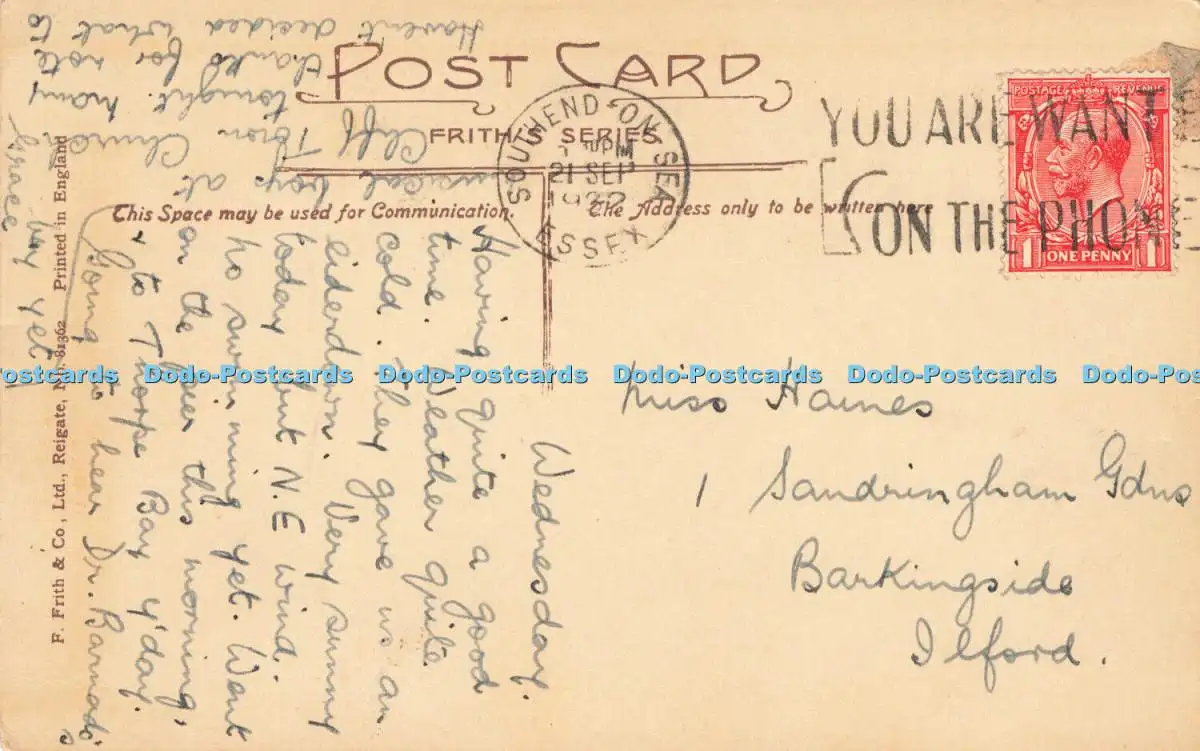 POST CARD
FRITH'S SERIES
This Space may be used for Communication.
The Address only to be written here
SOUTHEND ON SEA
PM
21 SEP
ESSEX
YOU ARE WANT
ON THE PHON
POSTAGE REVENUE
1 ONE PENNY 1
Miss Haines
1 Sandringham Gdns
Barkingside
Ilford.
Wednesday.
Having quite a good
time. Weather quite
cold. They gave us an
eiderdown. Very sunny
today but N.E wind.
No swimming yet. Went
on the pier this morning,
& to Thorpe Bay y'day.
Going to hear Dr. Barnado's
musical boys at
Cliff Town Church
tonight. Many
thanks for note
Haven't decided what to
buy yet
Grace
F. Frith & Co., Ltd., Reigate, 81362 Printed in England
Dodo-Postcards Dodo-Postcards Dodo-Postcards Dodo-Postcards Dodo-Postcards Dodo-Postcards